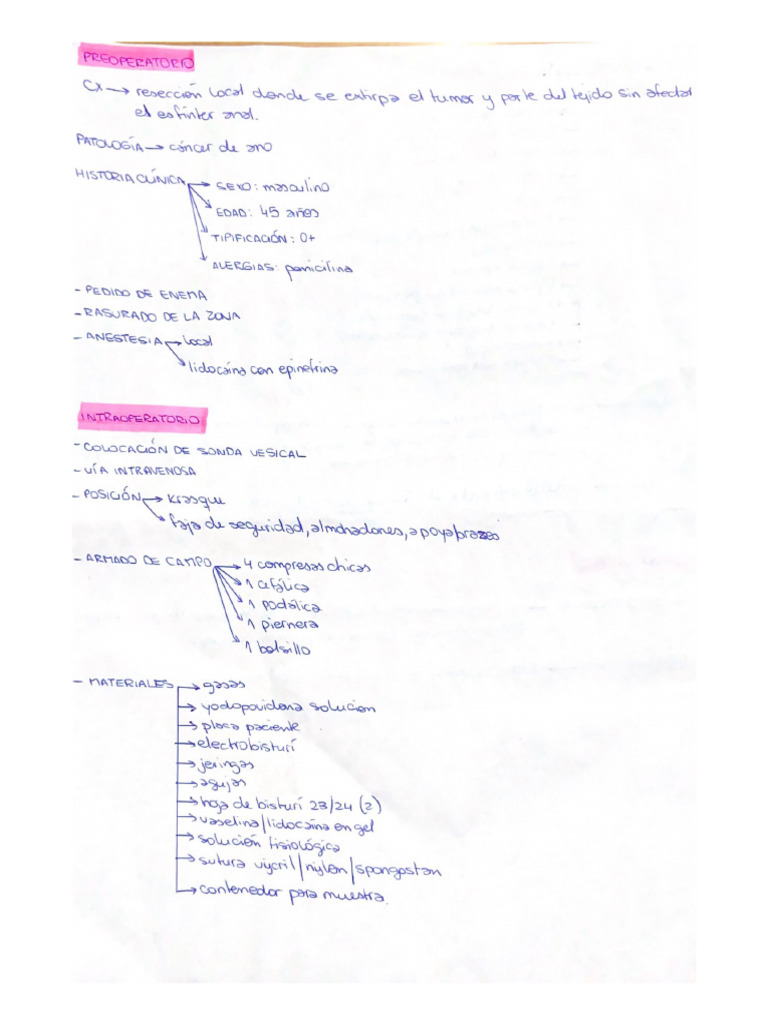 PREOPERATORIO
CX → resección local donde se extirpa el tumor y parte del tejido sin afectar
el esfínter anal.
PATOLOGÍA → cáncer de ano
HISTORIA CLÍNICA → SEXO: masculino
EDAD: 45 años
TIPIFICACIÓN: 0+
ALERGIAS: penicilina
- PEDIDO DE ENEMA
- RASURADO DE LA ZONA
- ANESTESIA → local
lidocaína con epinefrina
INTRAOPERATORIO
- COLOCACIÓN DE SONDA VESICAL
- VÍA INTRAVENOSA
- POSICIÓN → Kraske
faja de seguridad, almohadones, apoyabrazos
- ARMADO DE CAMPO → 4 compresas chicas
1 cefálica
1 podálica
1 piernera
1 bolsillo
- MATERIALES → gasas
→ yodopovidona solucion
→ placa paciente
→ electrobisturí
→ jeringas
→ agujas
→ hoja de bisturí 23/24 (2)
→ vaselina/lidocaína en gel
→ solución fisiológica
→ sutura vycril/nylon/spongostan
→ contenedor para muestra.